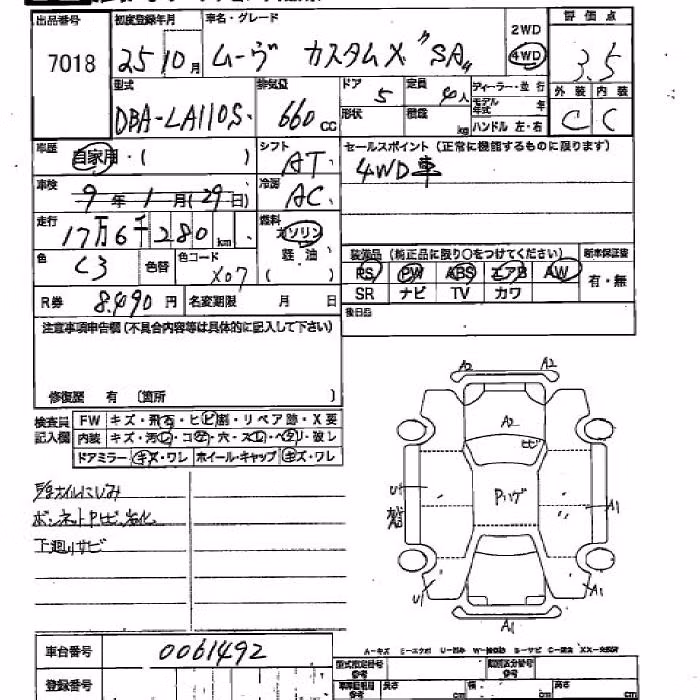 出品番号 初度登録年月 車名・グレード 2WD 4WD 評価点
7018 25 10月 ムーヴ カスタムX "SA" 3.5
型式 排気量 ドア 定員 ディーラー・並行 外装 内装
DBA-LA110S 660 CC 5 4人 モデル年式 年 C C
形状 積載 kg ハンドル 左・右
車歴 自家用・( ) シフト AT セールスポイント(正常に機能するものに限ります)
車検 9年1月(29日) 冷房 AC 4WD車
走行 17万6千280km 燃料 ガソリン 軽油 ( )
色 C3 色替 色コード X07
装備品(純正品に限り〇をつけてください) 新車保証書
PS PW ABS エアB AW 有・無
SR ナビ TV カワ
R券 8.490円 名変期限 月 日 後日品
注意事項申告欄(不具合内容等は具体的に記入して下さい)
修復歴 有 〔箇所 〕
検査員記入欄 FW キズ・飛石・ヒビ割・リペア跡・X要
内装 キズ・汚レ・コゲ・穴・スレ・ヘタリ・破レ
ドアミラー キズ・ワレ ホイール・キャップ キズ・ワレ
下廻りサビ
A2 A2
A2
ヒビ
Pハゲ
U A1
U A1
A1
車台番号 0061492
登録番号
A-キズ E-エクボ U-凹み
型式指定番号 類別区分番号
長さ cm 幅 cm 高さ cm